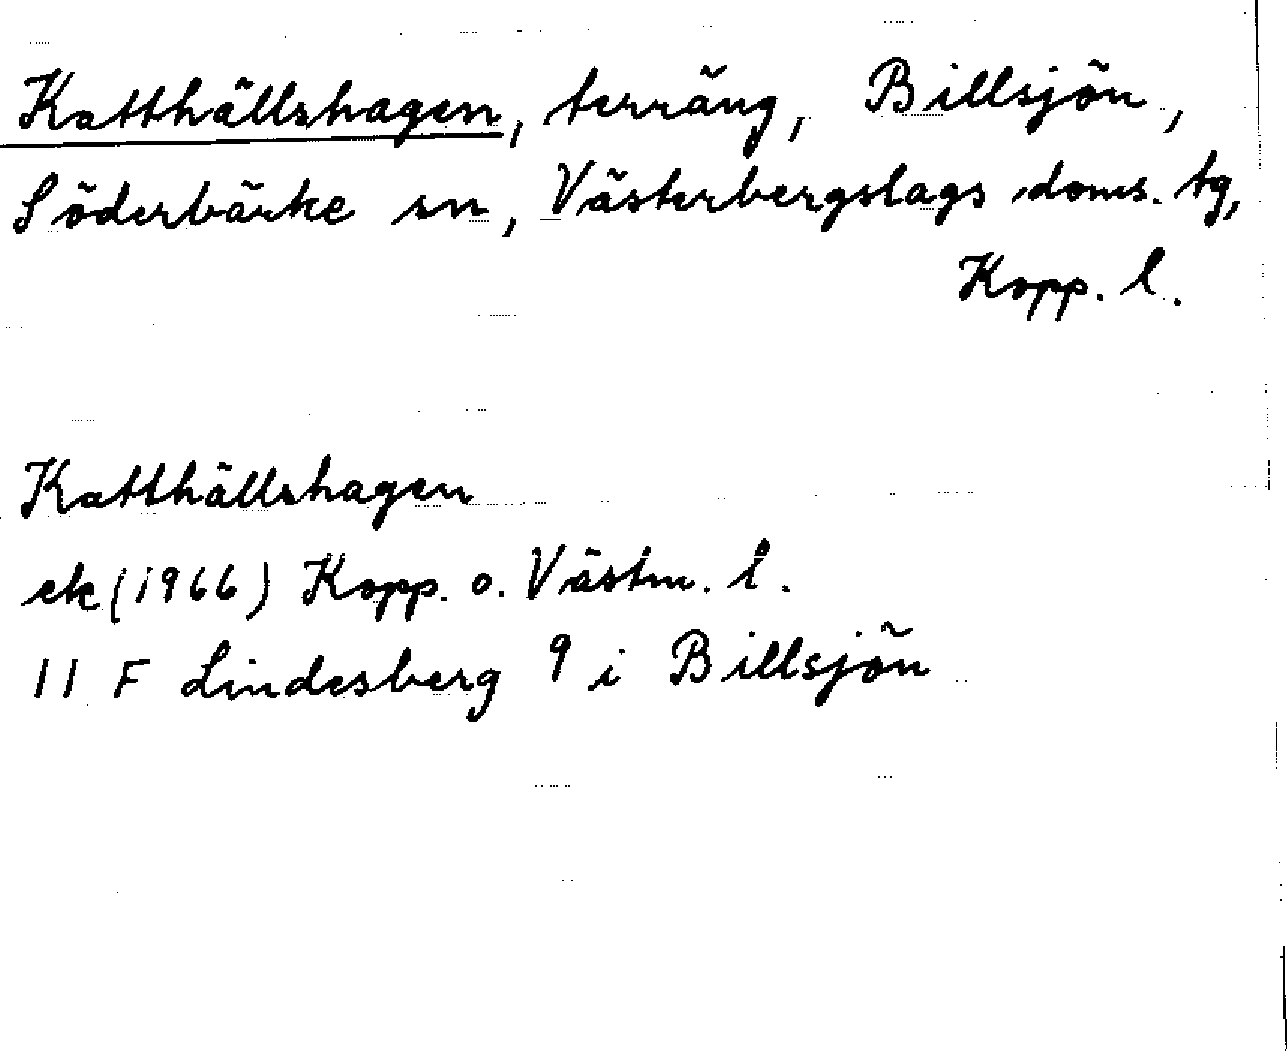 Katthällshagen, terräng, Billsjön,
Söderbärke sn, Västerbergslags doms. tg,
Kopp. l.
Katthällshagen
ek (1966) Kopp. o. Västm. l.
11 F Lindesberg 9 i Billsjön